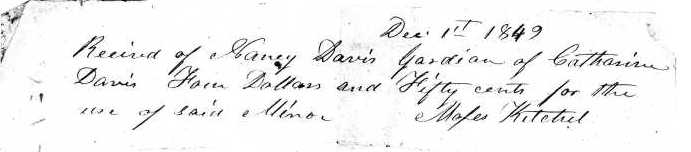 Dec 1st 1849
Recived of Nancy Davis Gardian of Catharine
Davis Four Dollars and Fifty cents for the
use of said Minor Moses Kitchel